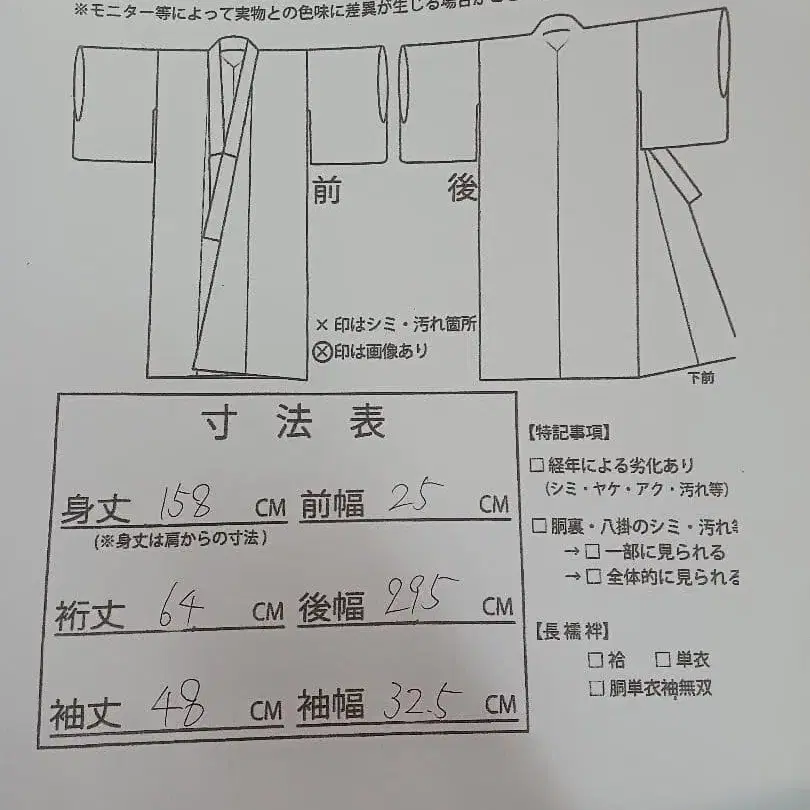 ※モニター等によって実物との色味に差異が生じる場合が
前 後
×印はシミ・汚れ箇所
⊗印は画像あり
下前
寸法表
身丈 158 CM 前幅 25 CM
(※身丈は肩からの寸法)
裄丈 64 CM 後幅 29.5 CM
袖丈 48 CM 袖幅 32.5 CM
【特記事項】
□ 経年による劣化あり
(シミ・ヤケ・アク・汚れ等)
□ 胴裏・八掛のシミ・汚れ等
→ □ 一部に見られる
→ □ 全体的に見られる
【長襦袢】
□ 袷 □ 単衣
□ 胴単衣袖無双